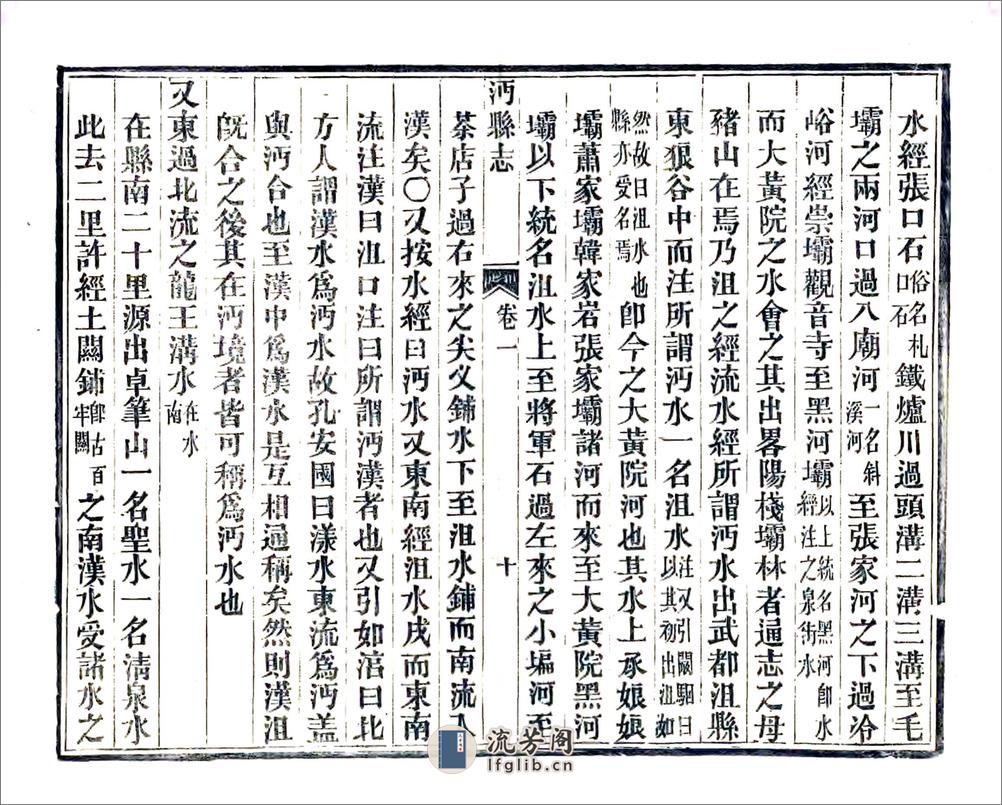 水經張口石俗名札口石鐵爐川過頭溝二溝三溝至毛
壩之兩河口過八廟河一名斜溪河至張家河之下過冷
峪河經崇壩觀音寺至黑河壩以上統名黑河卽水經注之泉街水
而大黃院之水會之其出畧陽棧壩林者逼志之母
豬山在焉乃沮之經流水經所謂沔水出武都沮縣
東狼谷中而注所謂沔水一名沮水注又引闞駰曰以其初出沮如
然故曰沮水也縣亦受名焉卽今之大黃院河也其水上承娘娘
壩蕭家壩韓家岩張家壩諸河而來至大黃院黑河
壩以下統名沮水上至將軍石過左來之小塥河至
沔縣志
卷一
十
茶店子過右來之尖父鋪水下至沮水鋪而南流入
漢矣〇又按水經曰沔水又東南經沮水戌而東南
流注漢曰沮口注曰所謂沔漢者也又引如淯曰北
方人謂漢水爲沔水故孔安國曰漾水東流爲沔蓋
與沔合也至漢中爲漢水是互相通稱矣然則漢沮
旣合之後其在沔境者皆可稱爲沔水也
又東過北流之龍王溝水在水南
在縣南二十里源出卓筆山一名聖水一名淸泉水
此去二里許經土關鋪卽古百牢關之南漢水受諸水之
流芳阁
lfglib.cn